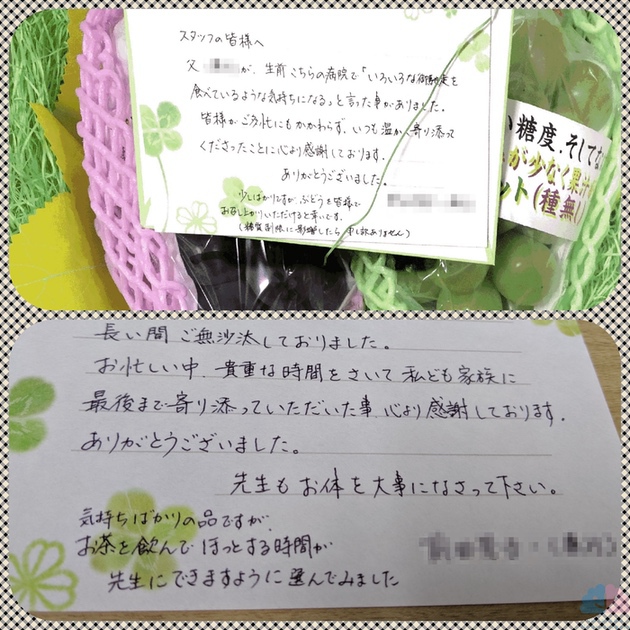 スタッフの皆様へ
父 が、生前こちらの病院で「いろいろな を
食べているような気持ちになる」と言った事がありました。
皆様がご多忙にもかかわらず、いつも温かく寄り添って
くださったことに心より感謝しております。
ありがとうございました。
少しばかりですが、ぶどうを皆様で
お召し上がりいただけると幸いです。
(糖質制限に影響したら申し訳ありません)
い糖度。そして
が少なく果汁
ット(種無し
長い間ご無沙汰しておりました。
お忙しい中、貴重な時間をさいて私ども家族に
最後まで寄り添っていただいた事、心より感謝しております。
ありがとうございました。
先生もお体を大事になさって下さい。
気持ちばかりの品ですが、
お茶を飲んでほっとする時間が
先生にできますように選んでみました